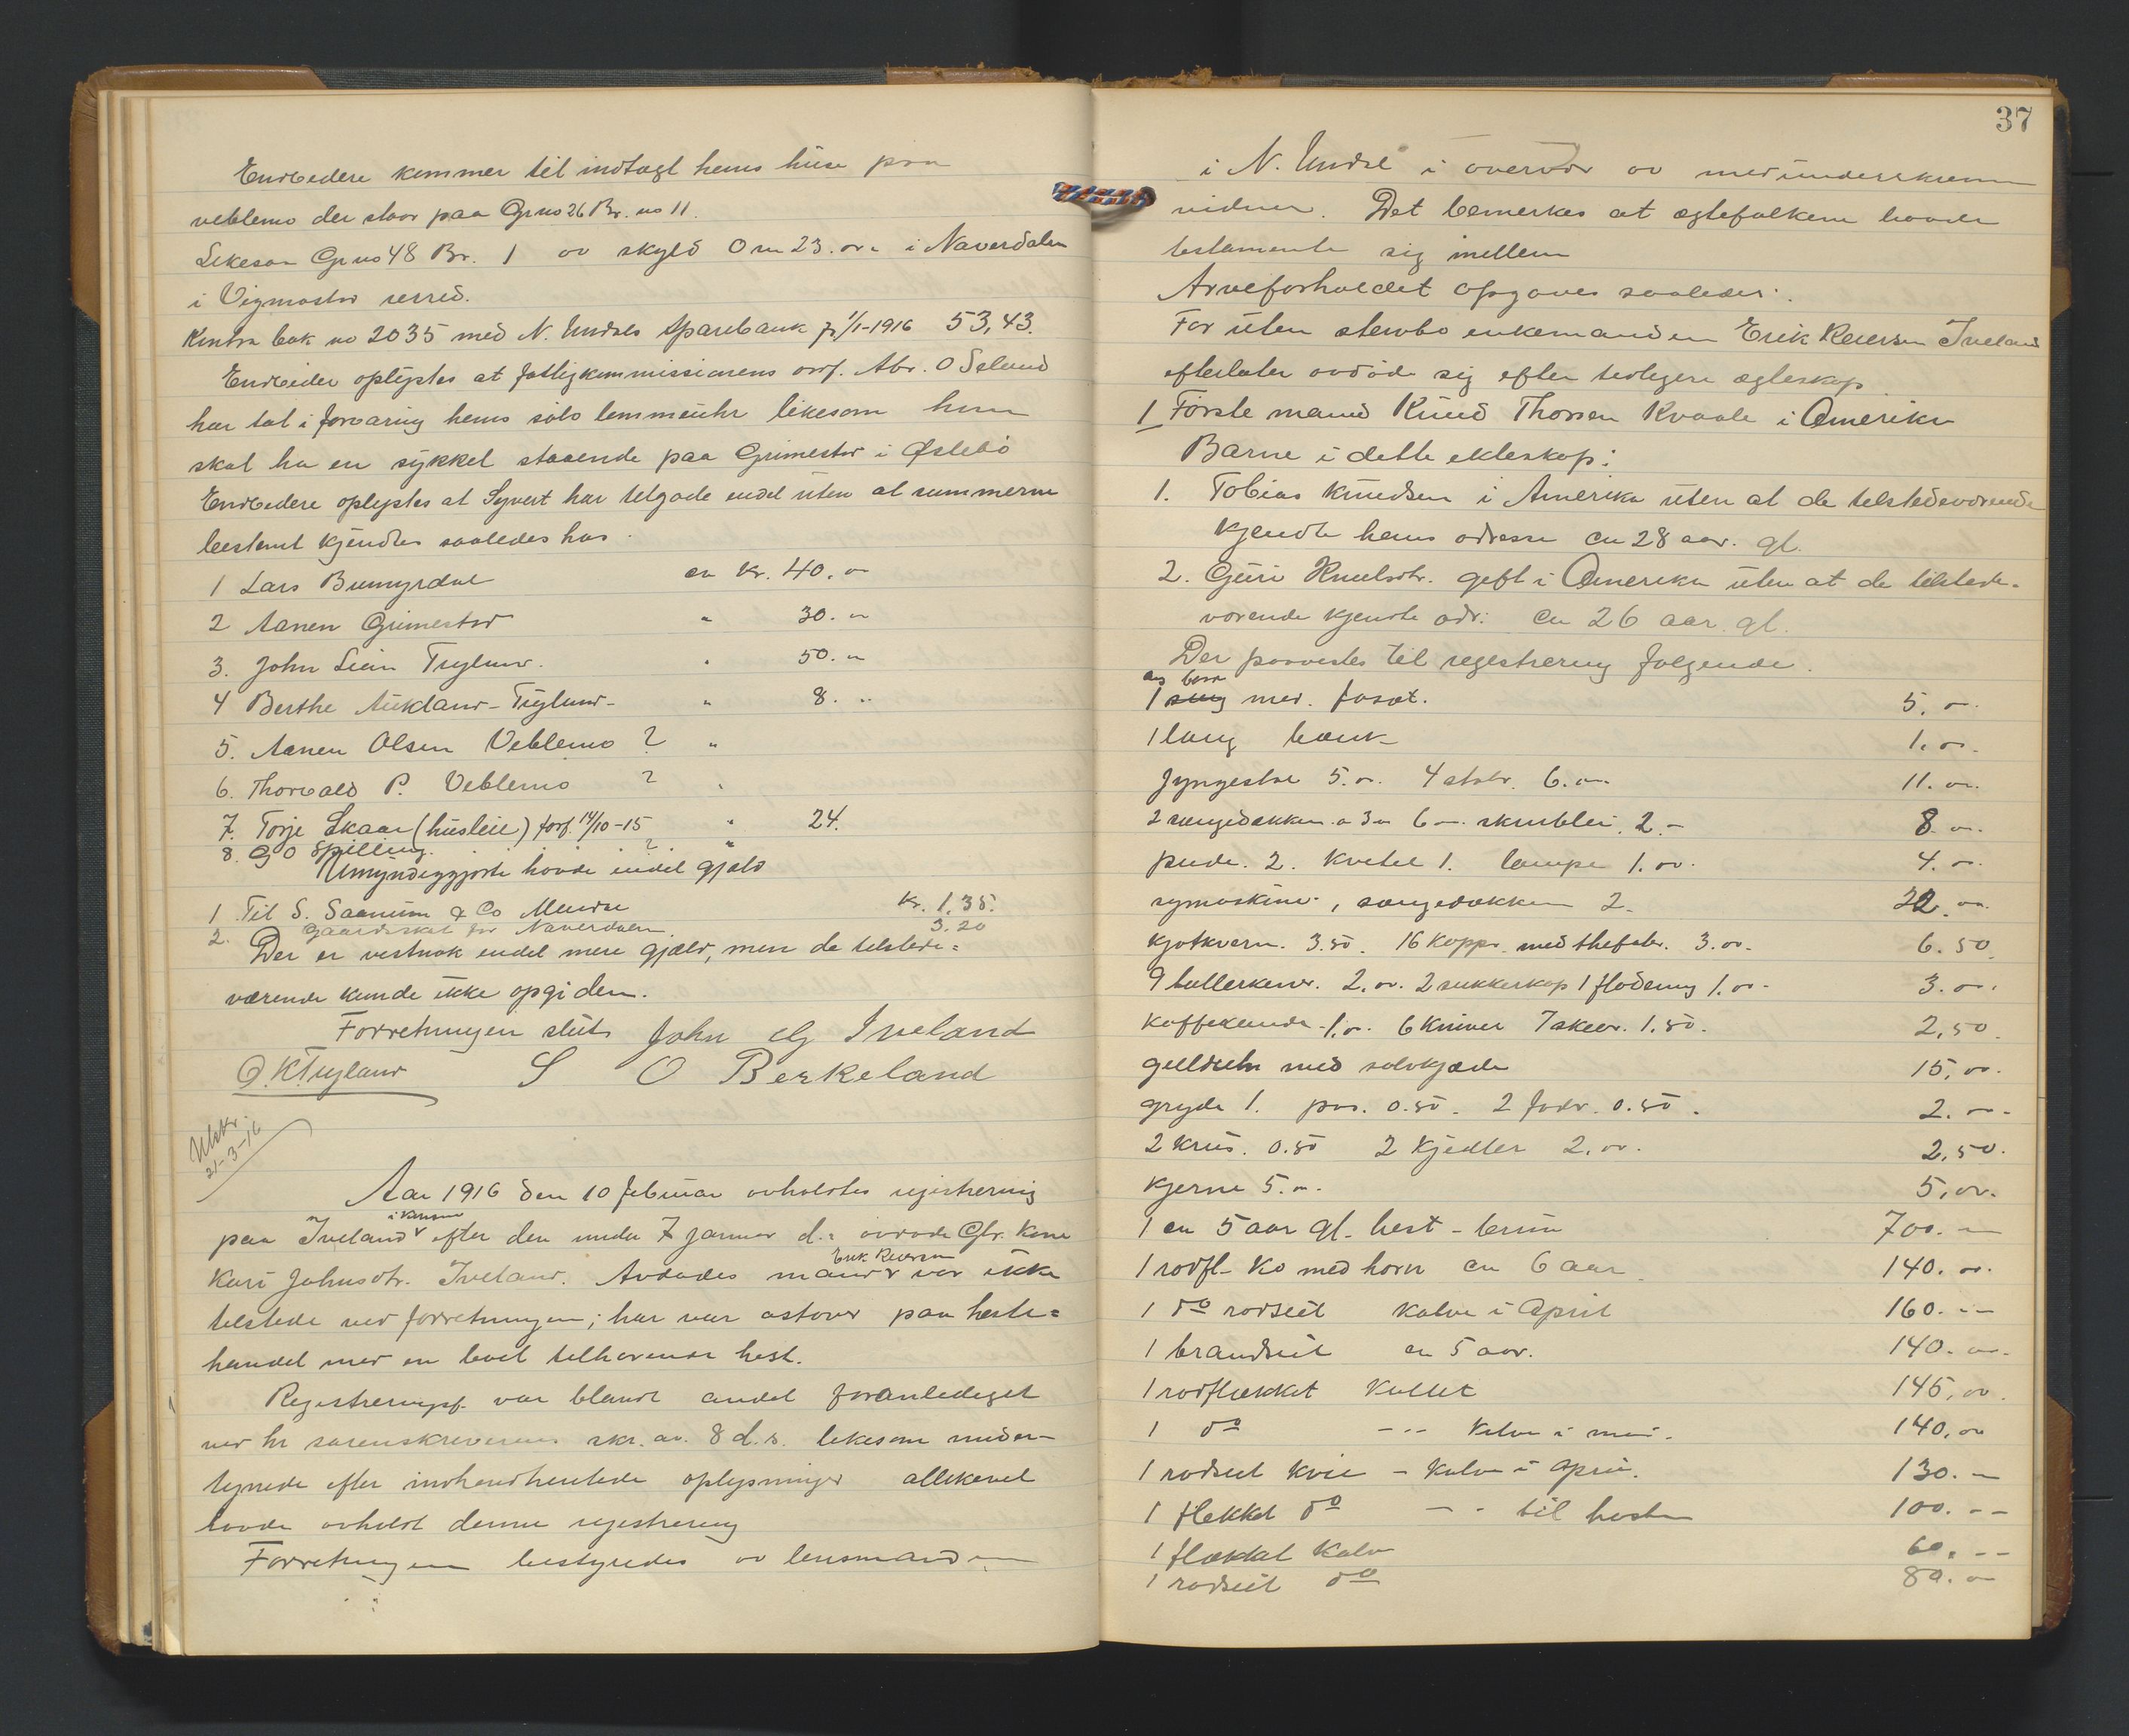 Endvidere kommer til indtægt hans huse paa
Veblemo der staar paa Gr no 26 Br. no 11.
Likesaa Gr no 48 Br. 1 av skyld 0 m 23. øre i Naverdalen
i Vigmostad herred.
Kontra bok no 2035 med N. Undals Sparebank pr 1/1-1916 53,43.
Endvider oplystes at fattigkommissionens ordf. Abr. O Sælund
har tat i forvaring hans sølv lommeuhr likesom han
skal ha en sykkel staaende paa Grimestad i Øslebø
Endvidere oplystes at Syvert har tilgode endel uten at summerne
bestemt kjendtes saaledes hos.
1 Lars Bumyrdal ca Kr. 40. oo
2 Aanen Grimestad " 30. "
3. John Lian Tryland. " 50. "
4 Berthe Aukland - Tryland - " 8. "
5. Aanen Olsen Veblemo ? "
6. Thorvald P. Veblemo ? "
7. Torje Skaar (husleie) forf. 14/10-15 " 24.
8. G O Spilling. . . . . ? . "
Umyndiggjorte havde endel gjæld
1 Til S. Saanum & Co Mandal Kr. 1,35.
2. Gaardskat for Naverdalen 3.20
Der er vistnok endel mere gjæld, men de tilstede=
værende kunde ikke opgi den.
Forretningen slut. John Elg Iveland
O. K. Tryland S O Berkeland
Utskr.
21-3-16
Aar 1916 den 10 februar avholdtes registrering
i Konsmo
paa Iveland efter den under 7 januar d. a avdøde Gbr. Kone
Erik Reiersen
Kari Johnsdtr. Iveland. Avdødes mand var ikke
tilstede ved forretningen; han var østover paa heste=
handel med en boet tilhørende hest.
Registreringsf. var blandt andet foranlediget
ved hr sorenskriverens skr. av. 8 d.s. likesom under-
tegnede efter indhendhentede oplysninger allikevel
havde avholdt denne registrering
Forretningen bestyredes av lensmanden
37
i N. Undal i overvær av medunderskrevne
vidner. Det bemerkes at egtefolkene havde
testamente sig mellem
Arveforholdet opgaves saaledes:
For uten stervbo enkemanden Erik Reiersen Iveland
efterlater avdøde sig efter tidligere egteskap
1 Første mand Knud Thorsen Kvaale i Amerika
Barne i dette ekteskap:
1. Tobias Knudsen i Amerika uten at de tilstedeværende
kjendte hans adresse ca 28 aar. gl.
2. Guri Knudsdtr. gift i Amerika uten at de tilstede-
værende kjendte adr: ca 26 aar gl.
Der paavistes til registrering følgende.
1 seng med. 5. oo
1 lang bænk 1. oo.
Gyngestol 5. oo. 4 stoler 6. oo. 11. oo.
2 sengedækken a 3 oo 6 - skinblei 2. - 8. oo.
pude. 2. Kvitel 1. lampe 1. oo. 4. oo.
symaskine, sengedækken 2. 22. oo.
Kjøtkvern. 3.50. 16 Kopper med thefater. 3. oo. 6.50.
9 tallerkener. 2. oo. 2 sukkerkop 1 flødemug 1. oo. 3. oo.
Kaffekande 1. oo. 6 Kniver 7 skeer. 1.50. 2,50.
gulduhr med sølvkjæde 15, oo.
gryde 1. 0.50. 2 0.50. 2. oo.
2 krus. 0.50 2 Kjedler 2. oo. 2,50.
Kjerne 5. oo. 5, oo.
1 ca 5 aar gl. hest - brun 700. -
1 rødfl. Ko med horn ca 6 aar 140. oo.
1 do rødseit kalve i april 160. --
1 brandseit ca 5 aar. 140. oo.
1 rødflækket Kullet 145, oo.
1 do --- Kalve i mai. 140, oo
1 rødseit Kvie - Kalve i April. 130. -
1 flekket do -- til høsten 100. --
1 flækkat Kalv 60. --
1 rødseit do 80. oo